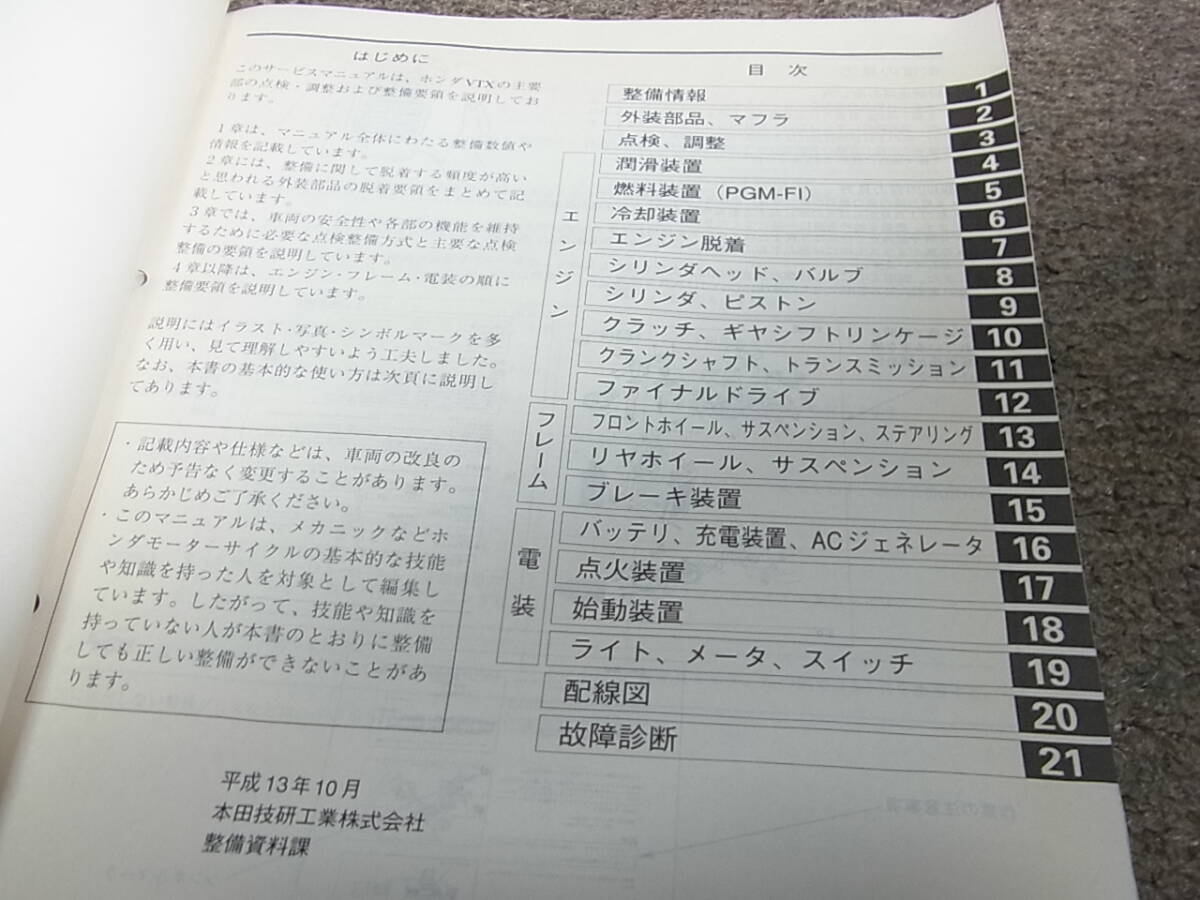 はじめに
このサービスマニュアルは、ホンダVTXの主要
部の点検・調整および整備要領を説明してお
ります。
1章は、マニュアル全体にわたる整備数値や
情報を記載しています。
2章には、整備に関して脱着する頻度が高い
と思われる外装部品の脱着要領をまとめて記
載しています。
3章では、車両の安全性や各部の機能を維持
するために必要な点検整備方式と主要な点検
整備の要領を説明しています。
4章以降は、エンジン・フレーム・電装の順に
整備要領を説明しています。
説明にはイラスト・写真・シンボルマークを多
く用い、見て理解しやすいよう工夫しました。
なお、本書の基本的な使い方は次頁に説明し
てあります。
・記載内容や仕様などは、車両の改良の
ため予告なく変更することがあります。
あらかじめご了承ください。
・このマニュアルは、メカニックなどホ
ンダモーターサイクルの基本的な技能
や知識を持った人を対象として編集し
ています。したがって、技能や知識を
持っていない人が本書のとおりに整備
しても正しい整備ができないことがあ
ります。
平成13年10月
本田技研工業株式会社
整備資料課
目次
整備情報 1
外装部品、マフラ 2
点検、調整 3
エンジン
潤滑装置 4
燃料装置（PGM-FI） 5
冷却装置 6
エンジン脱着 7
シリンダヘッド、バルブ 8
シリンダ、ピストン 9
クラッチ、ギヤシフトリンケージ 10
クランクシャフト、トランスミッション 11
ファイナルドライブ 12
フレーム
フロントホイール、サスペンション、ステアリング 13
リヤホイール、サスペンション 14
ブレーキ装置 15
電装
バッテリ、充電装置、ACジェネレータ 16
点火装置 17
始動装置 18
ライト、メータ、スイッチ 19
配線図 20
故障診断 21